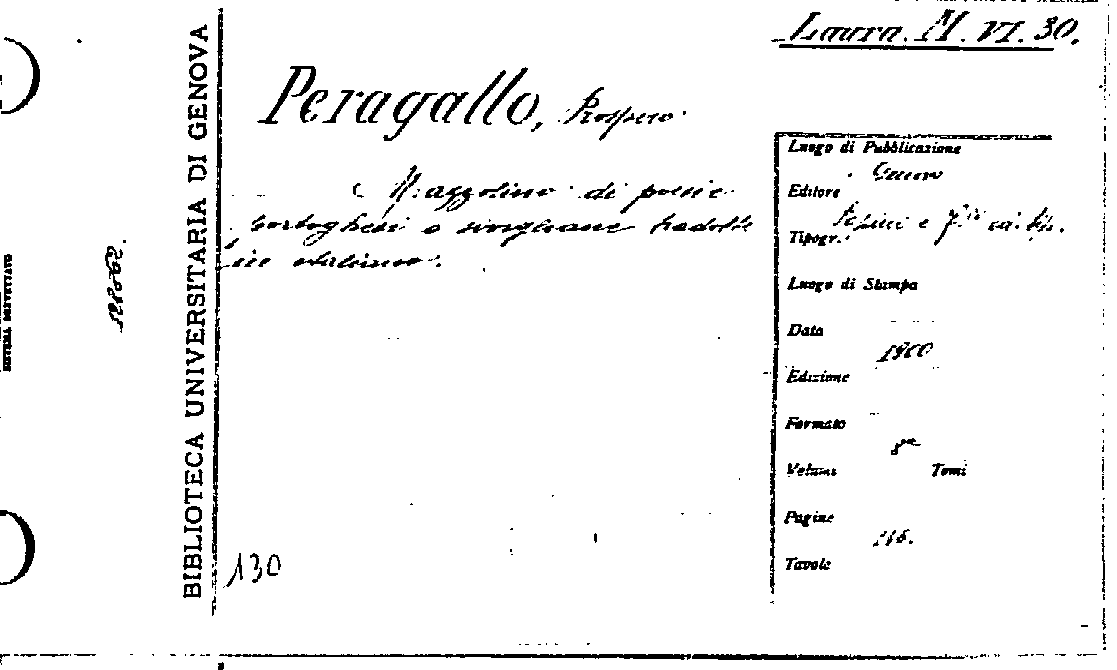 Laura. M. VI. 30.
Peragallo, Prospero
Mazzolino di poesie
portoghesi e sivigliane tradotte
in italiano.
130
BIBLIOTECA UNIVERSITARIA DI GENOVA
Luogo di Pubblicazione
Genova
Editore
Tipogr.
Luogo di Stampa
Data
1900
Edizione
Formato
8°
Volumi Tomi
Pagine
Tavole